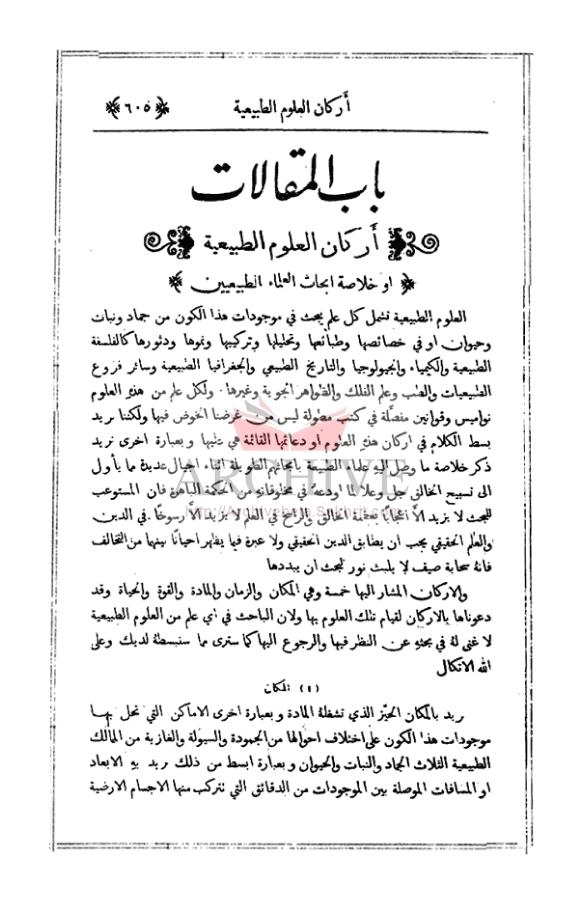 أركان العلوم الطبيعية ﴿٦٠٥﴾
باب المقالات
أركان العلوم الطبيعية
﴿ او خلاصة ابحاث العلماء الطبيعيين ﴾
العلوم الطبيعية تشمل كل علم يبحث في موجودات هذا الكون من جماد ونبات
وحيوان او في خصائصها وطبائعها وتحليلها وتركيبها ونموها ودثورها كالفلسفة
الطبيعية والكيمياء والجيولوجيا والتاريخ الطبيعي والجغرافيا الطبيعية وسائر فروع
الطبيعيات والطب وعلم الفلك والظواهر الجوية وغيرها . ولكل علم من هذه العلوم
نواميس وقوانين مفصلة في كتب مطولة ليس من غرضنا الخوض فيها ولكننا نريد
بسط الكلام في اركان هذه العلوم او دعائمها القائمة هي عليها وبعبارة اخرى نريد
ذكر خلاصة ما وصل اليه علماء الطبيعة بابحاثهم الطويلة اثناء اجيال عديدة مما يأول
الى تسبيح الخالق جل وعلا لما اودعه في مخلوقاته من الحكمة الباهرة فان المستوعب
للبحث لا يزيد الا اعجابًا بعظمة الخالق والراسخ في العلم لا يزيد الا رسوخًا في الدين
والعلم الحقيقي يجب ان يطابق الدين الحقيقي ولا عبرة فيما يظهر احيانًا بينهما من التخالف
فانه سحابة صيف لا يلبث نور البحث ان يبددها
والاركان المشار اليها خمسة وهي المكان والزمان والمادة والقوة والحياة وقد
دعوناها بالاركان لقيام تلك العلوم بها ولان الباحث في اي علم من العلوم الطبيعية
لا غنى لهُ في بحثهِ عن النظر فيها والرجوع اليها كما سترى مما سنبسطهُ لديك وعلى
الله الاتكال
(١) المكان
نريد بالمكان الحيّز الذي تشغلهُ المادة وبعبارة اخرى الاماكن التي تحل بها
موجودات هذا الكون على اختلاف احوالها من الجمودة والسيولة والغازية من الممالك
الطبيعية الثلاث الجماد والنبات والحيوان وبعبارة ابسط من ذلك نريد بهِ الابعاد
او المسافات الموصلة بين الموجودات من الدقائق التي تتركب منها الاجسام الارضية
ARCHIVE